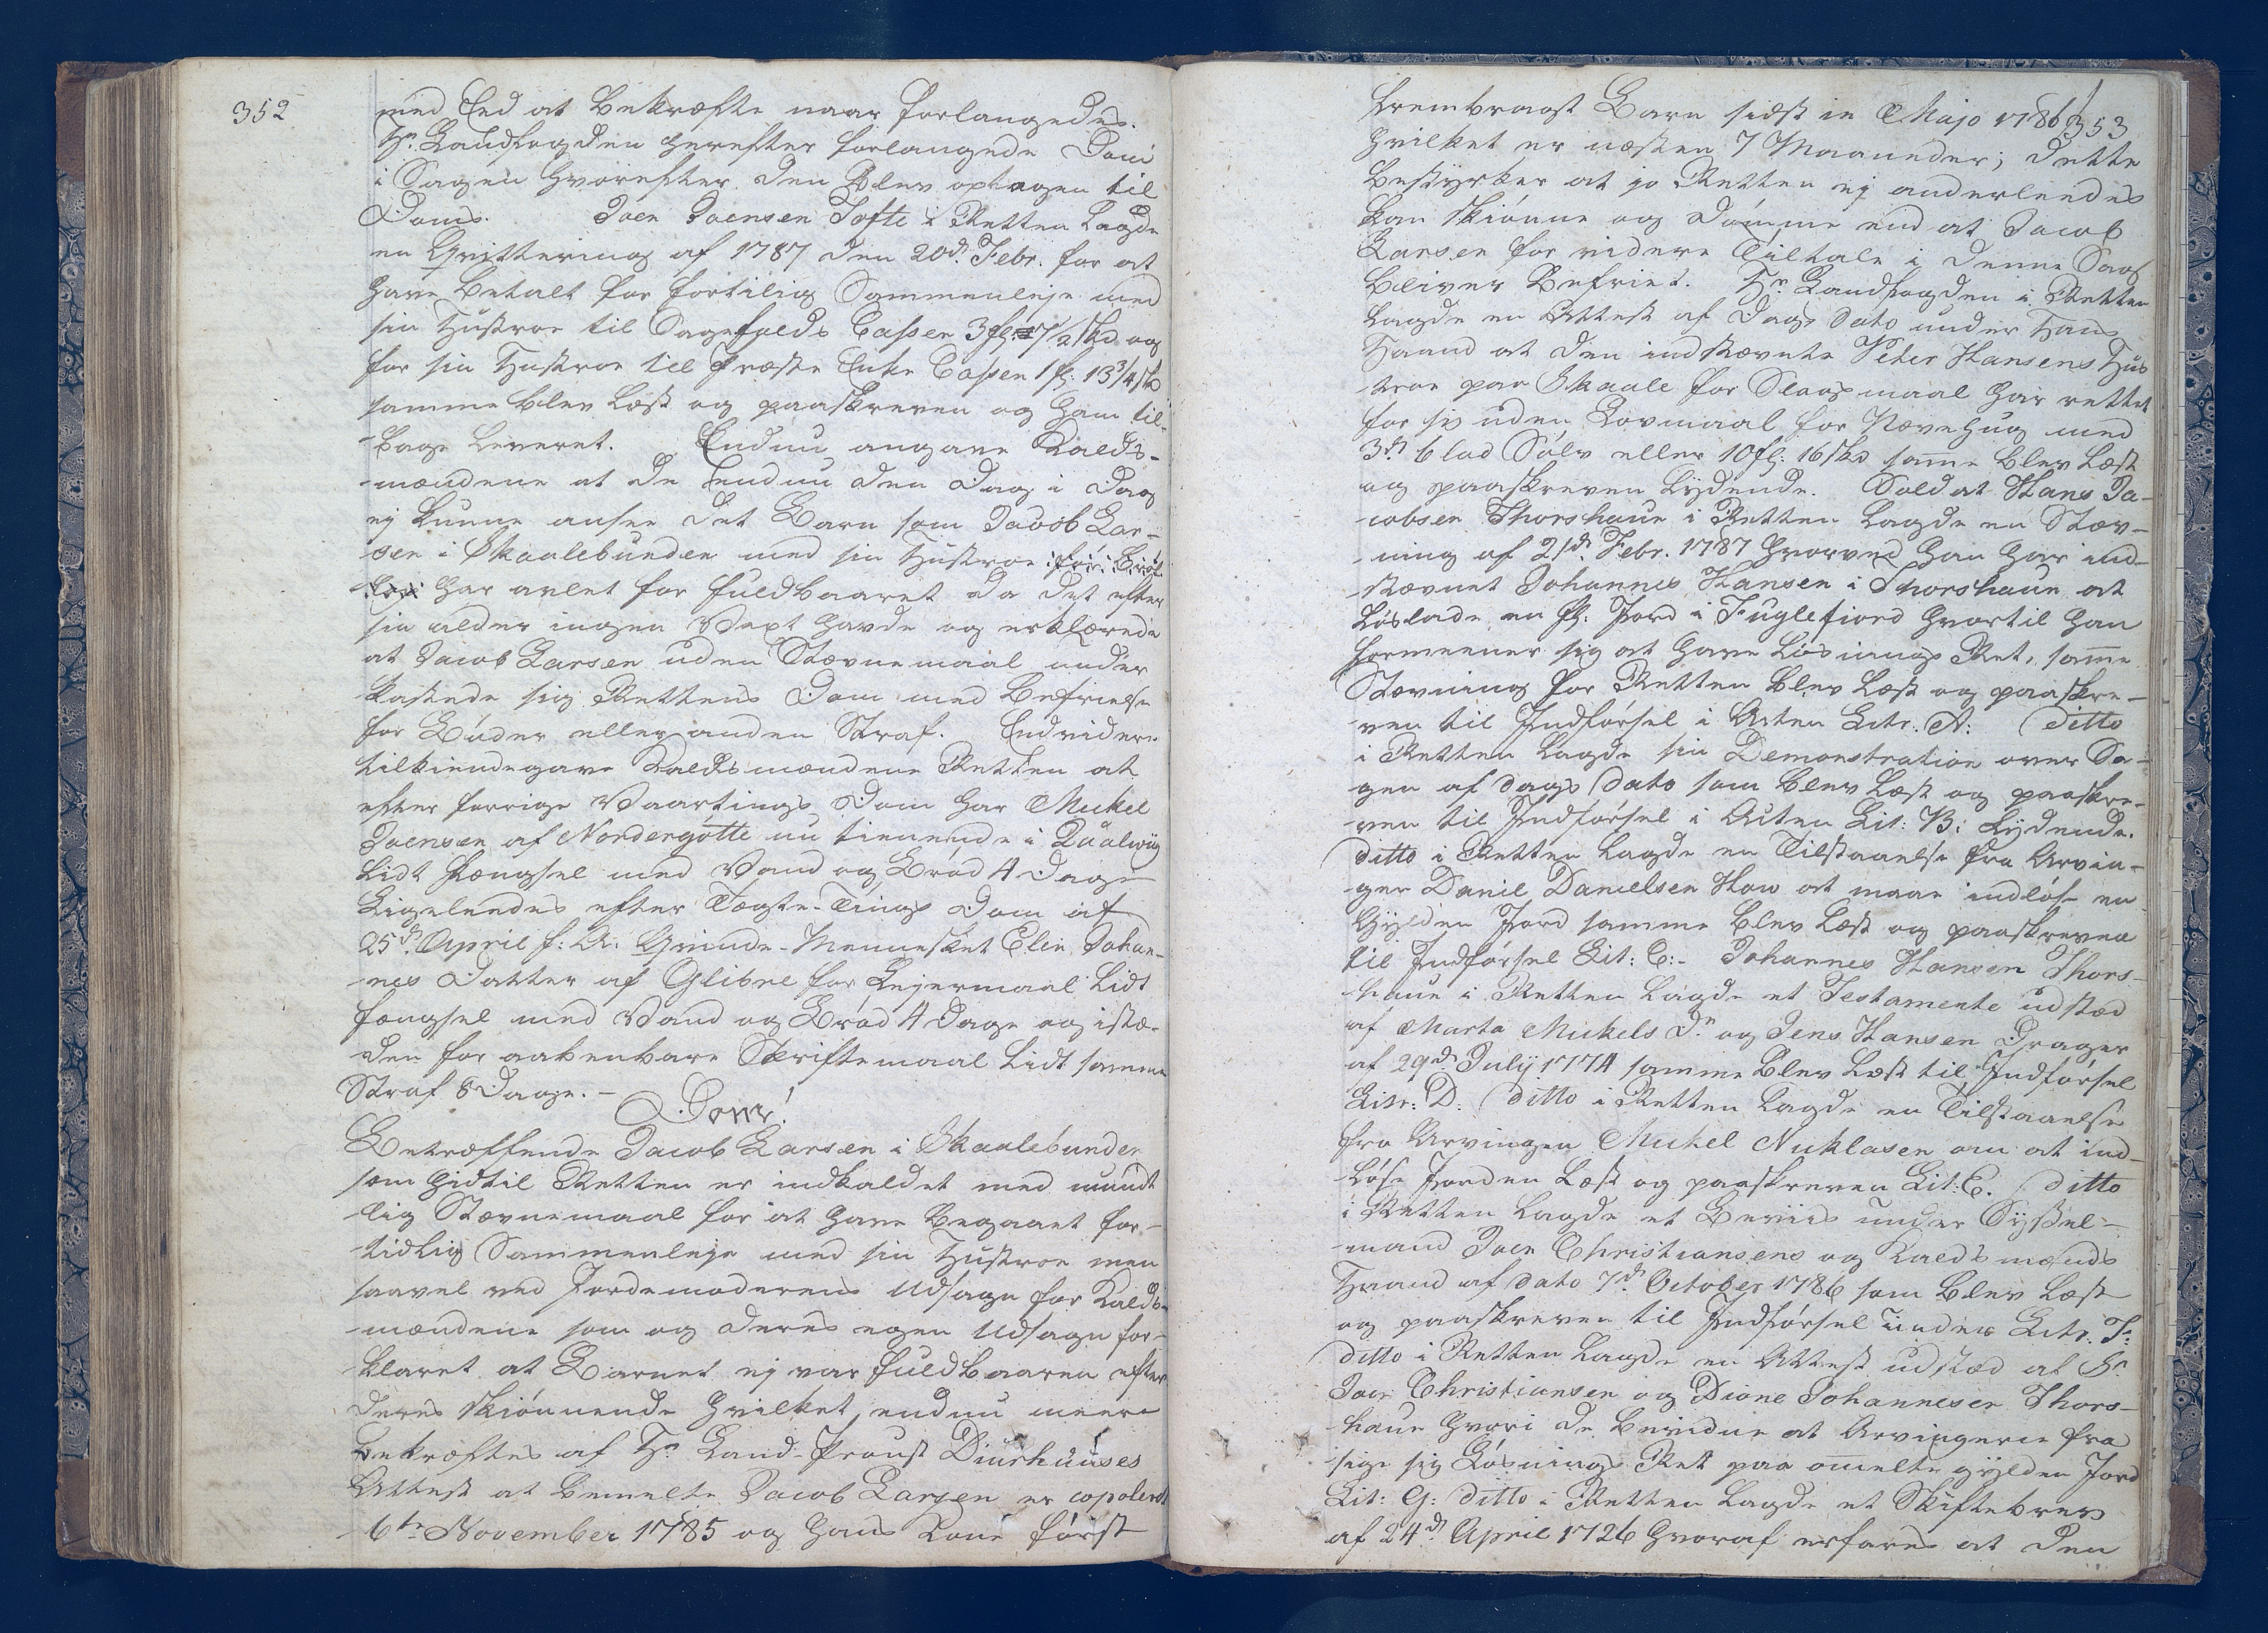 352
med Eed at bekræfte naar forlangedes.
Hr. Landfogden herefter forlangede Dom
i Sagen hvorefter den blev optagen til
Doms. Joen Joensen Tofte i Retten lagde
en Qvittering af 1787 den 20de Febr. for at
have betalt for fortilig Sammenleje med
sin Hustroe til Sagefalds Cassen 3 fl: 17/2 skd og
for sin Hustroe til Præste Enke Cassen 1 fl: 13 3/4 sk
samme blev læst og paaskreven og ham til-
-bage leveret. Endnu angave Kalds-
-mændene at de endnu den Dag i Dag
ej kunne ansee det Barn som Jacob Lar-
sen i Skaalebunden med sin Hustroe
har avlet for fuldbaaret da det efter
sin alder ingen Vext havde og erklærede
at Jacob Larsen uden Stævnemaal under
kastede sig Rettens Dom med befrielse
for Bøder eller anden Straf. Endvidere
tilkiendegave Kaldsmændene Retten at
efter forrige Vaartings Dom har Mickel
Joensen af Nordergøtte nu tienende i Qualwiig
lidt Fængsel med Vand og Brød 4 Dage
Ligeleedes efter Togte-Tings Dom af
25de April f: A: Qvinde-Mennesket Elin Johan-
-nes Datter af Glibre for Lejermaal lidt
fængsel med Vand og Brød 4 dage og istæ-
den for aabenbare Skriftemaal lidt samme
Straf 8 Dage. -
Dom!
Betræffende Jacob Larsen i Skaalebunden
som hidtil Retten er indkaldet med mundt
-lig Stævnemaal for at have begaaet for-
-tidlig Sammenleje med sin Hustroe men
saavel ved Jordemoderens Udsagn for Kalds-
-mændene som og deres egen Udsagn for-
-klaret at Barnet ej var fuldbaaren efter
deres skiønnende hvilket endnu meere
bekræftes af Hr. Land-Proust Diurhuuses
Attest at bemelte Jacob Larsen er copoleret
6te November 1785 og hans Kone først
353
frembragt Barn sidst in Majo 1786
hvilket er næsten 7 Maaneder; dette
bestyrker at jo Retten ej anderleedes
kan skiønne og dømme end at Jacob
Larsen for videre Tiltale i denne Sag
bliver befriet. Hr. Landfogden i Retten
lagde en Attest af Dags Dato under Hans
Haand at den indstævnte Peter Hansens Hus
-troe paa Skaale for Slagsmaal har rettet
for sig uden Lovmaal for Nævehug med
3de 6 lod Sølv eller 10 fl: 16 skd same blev læst
og paaskreven lydende. Soldat Hans Ja-
-cobsen Thorshaun i Retten lagde en Stæv-
-ning af 21de Febr. 1787 hvorved han har ind-
-stævnet Johannes Hansen i Thorshaun at
løslade en fl: Jord i Fuglefiord hvortil han
formeener sig at have Løsnings Ret, samme
Stævning for Retten blev læst og paaskre-
-ven til Indførsel i Acten Litr: A: ditto
i Retten lagde sin Demonstration over Sa-
-gen af dags dato som blev læst og paaskre-
-ven til Indførsel i Acten Lit: B: lydende.
ditto i Retten lagde en Tilstaaelse fra Arvin-
-gen Danil Danielsen How at maae indløse en
Gylden Jord samme blev læst og paaskreven
til Indførsel Lit: C:- Johannes Hansen Thors-
-haun i Retten lagde et Testamente udstæd
af Marta Mickels Dr. og Jens Hansen Drager
af 29de July 1774 samme blev læst til Indførsel
Litr: D: ditto i Retten lagde en Tilstaaelse
fra Arvingen Mickel Nicklasen om at ind-
-løse Jorden læst og paaskreven Lit: E. ditto
i Retten lagde et Beviis under Syssel-
-mand Joen Christiansens og Kaldsmænds
Haand af dato 7de October 1786 som blev læst
og paaskreven til Indførsel under Litr. F:
ditto i Retten lagde en Attest udstæd af Sr.
Joen Christiansen og Dione Johannesen Thors-
-haun hvori de bevidne at Arvingerne fra
sige sig Løsnings Ret paa omelte gylden Jord
Lit: G: ditto i Retten lagde et Skiftebrev
af 24de April 1726 hvoraf erfares at den